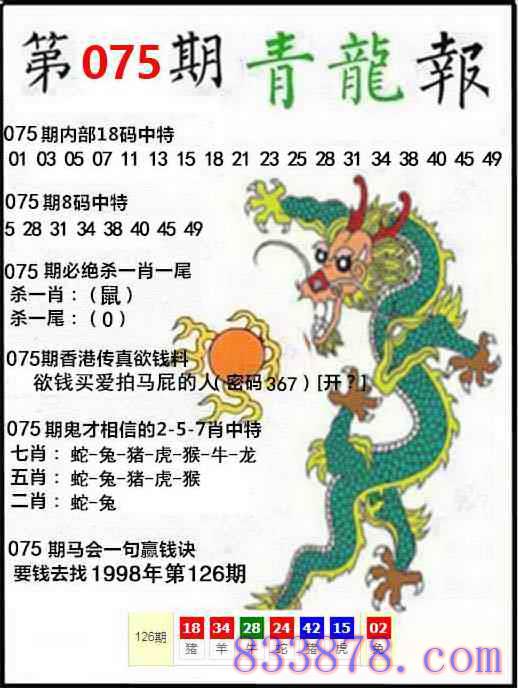 第075期 青龍報
075期内部18码中特
01 03 05 07 11 13 15 18 21 23 25 28 31 34 38 40 45 49
075期8码中特
5 28 31 34 38 40 45 49
075 期必绝杀一肖一尾
杀一肖：（鼠）
杀一尾：（0）
075期香港传真欲钱料
欲钱买爱拍马屁的人(密码367)[开？]
075期鬼才相信的2-5-7肖中特
七肖：蛇-兔-猪-虎-猴-牛-龙
五肖：蛇-兔-猪-虎-猴
二肖：蛇-兔
075 期马会一句赢钱诀
要钱去找1998年第126期
126期 18 34 28 24 42 15 02
猪 羊 牛 蛇 猪 虎 兔
833878.com